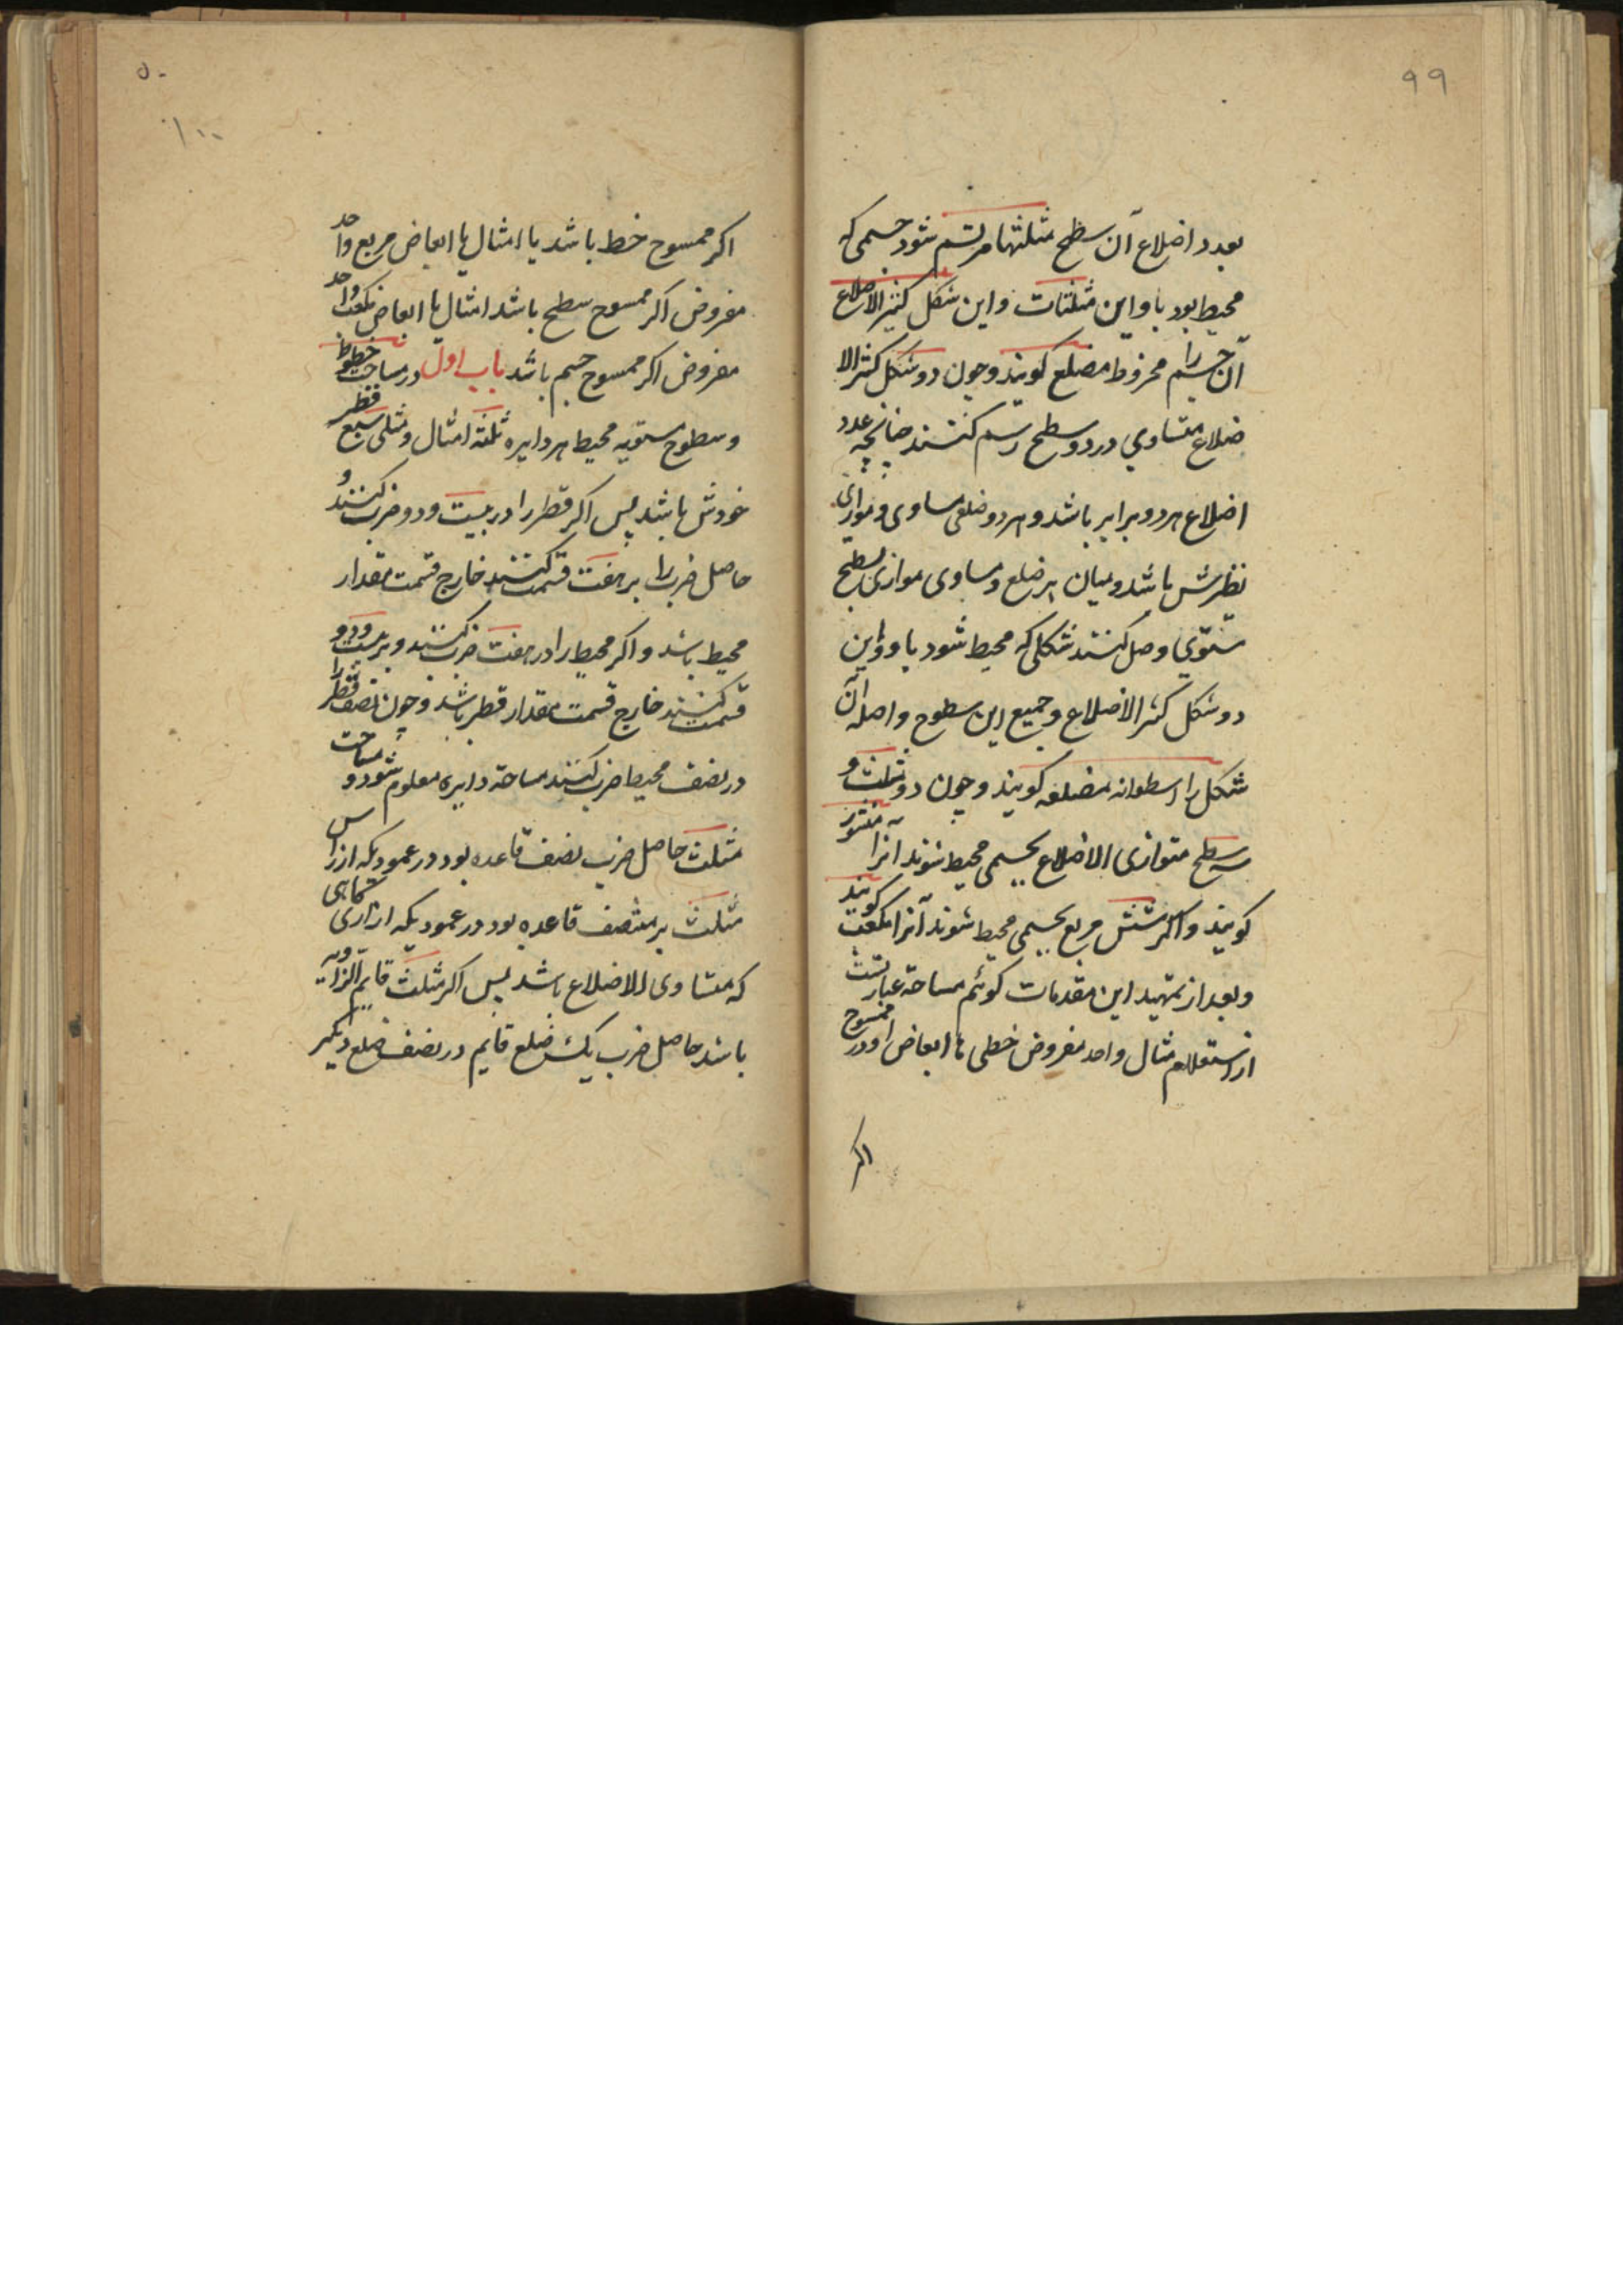 ۹۹
بعدد اضلاع آن سطح مثلثها مرتسم شود جسمی که
محیط بود باو این مثلثات و این شکل کثیر الاضلاع
آن جسم را مخروط مضلع کویند و چون دو شکل کثیر الا
ضلاع متساوی در دو سطح رسم کنند چنانچه عدد
اضلاع هر دو برابر باشد و هر دو ضلعی مساوی و موازی
نظیرش باشد و میان هر ضلع و مساوی موازی بسطح
مستوی وصل کنند شکلی که محیط شود باو و این
دو شکل کثیر الاضلاع و جمیع این سطوح واصله آن
شکل را اسطوانه مضلعه کویند و چون دو مثلث و
سه سطح متوازی الاضلاع بجسمی محیط شوند انرا منشور
کویند و اکر شش مربع بجسمی محیط شوند آنرا مکعب کویند
و بعد از تمهید این مقدمات کوئیم مساحة عبارتست
از استعلام مثال واحد مفروض خطی یا ابعاض او در ممسوح
اکر
۵۰
۱۰۰
اکر ممسوح خط باشد یا امثال یا ابعاض مربع واحد
مفروض اکر ممسوح سطح باشد امثال یا ابعاض مکعب واحد
مفروض اکر ممسوح جسم باشد باب اول در مساحت خطوط
و سطوح مستویه محیط هر دایره ثلثة امثال و مثلی سبع قطر
خودش باشد پس اکر قطر را در بیست و دو ضرب کنند و
حاصل ضرب را بر هفت قسمت کنند خارج قسمت مقدار
محیط باشد و اکر محیط را در هفت ضرب کنند و بر بیست و دو
قسمت کنند خارج قسمت مقدار قطر باشد و چون نصف قطر را
در نصف محیط ضرب کنند مساحة دایره معلوم شود و مساحت
مثلث حاصل ضرب نصف قاعده بود در عمودیکه از راس
مثلث بر منتصف قاعده بود در عمودیکه از آری کاهی
که متساوی الاضلاع باشد پس اکر مثلث قایم الزاویه
باشد حاصل ضرب یک ضلع قایم در نصف ضلع دیکر